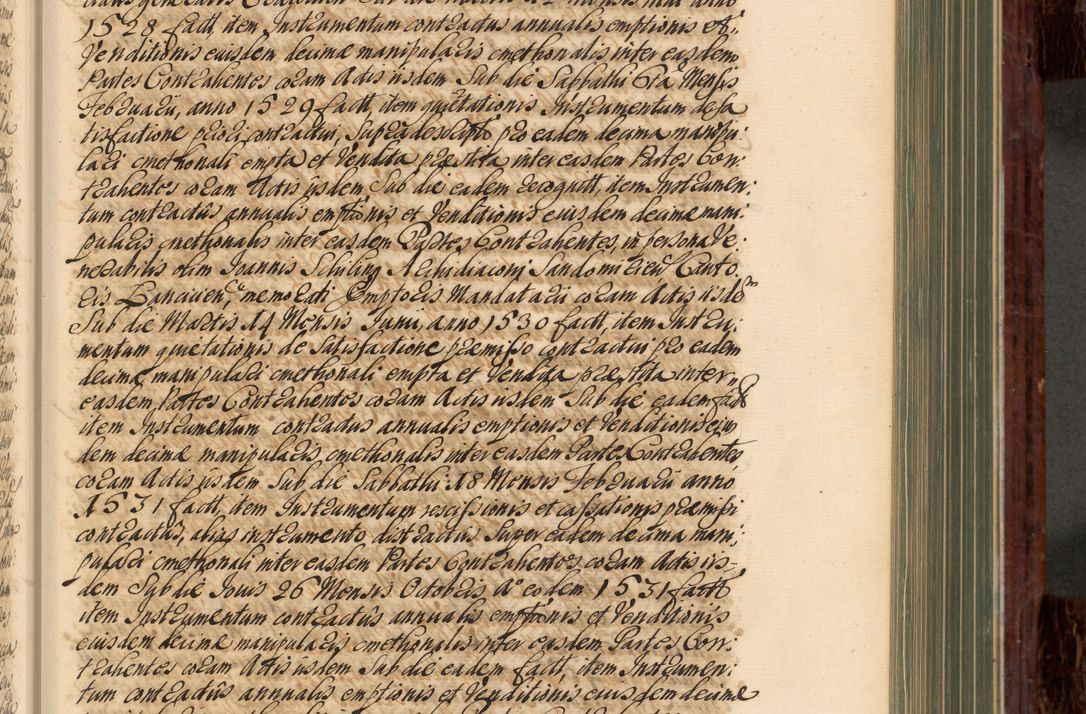 1528 factt, item Instrumentum contractus annualis emptionis et
Venditionis eiusdem decimæ manipularis cmethonalis inter easdem
Partes Contrahentes coram Actis iisdem Sub die Sabbathi 6ta Mensis
Februarii, anno 1529 factt, item quietationis Instrumentum de sa
tisfactione prioris contractus, Supra descripto pro eadem decima manipu:
lari cmethonali empta et Vendita præstita inter easdem Partes Con:
trahentes coram Actis iisdem Sub die eadem recognitt, item Instrumen:
tum contractûs annualis emptionis et Venditionis eiusdem decimæ mani:
pularis cmethonalis inter easdem Partes Contrahentes, in persona Ve:
nerabilis olim Joannis Schiling Archidiaconi Sandomirien: Canto:
ris Lancicien, memorati Emptoris Mandatarii coram Actis iisdem
Sub die Martis 14 Mensis Junii, anno 1530 factt, item Instru:
mentum quietationis de Satisfactione præmisso contractui pro eadem
decima, manipulari cmethonali empta et Vendita præstita inter
easdem Partes Contrahentes coram Actis iisdem Sub die eadem factt
item Instrumentum contractus annualis emptionis et Venditionis eius
dem decimæ manipularis cmethonalis inter easdem Partes Contrahentes
coram Actis iisdem Sub die Sabbathi 18 Mensis Februarii anno
1531 factt, item Instrumentum rescissionis et cassationis præmissi
contractûs, alias instrumento dist ractus Super eadem decima mani:
pulari cmethonali inter easdem Partes Contrahentes, coram Actis iis-
dem Sub die Jouis 26 Mensis Octobris Aº eodem 1531 factt
item Instrumentum contractûs annualis emptionis et Venditionis
eiusdem decimæ manipularis cmethonalis inter easdem Partes Con:
trahentes coram Actis iisdem Sub die eadem factt, item Instrumen:
tum contractûs annualis emptionis et Venditionis eiusdem decimæ